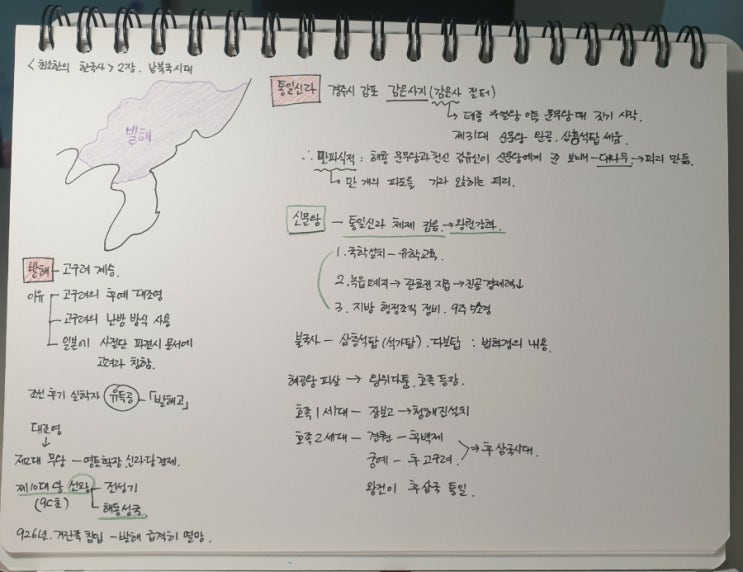 <최소한의 한국사> 2장. 남북국시대
발해
발해 - 고구려 계승.
이유 - 고구려의 후예 대조영
- 고구려의 난방 방식 사용
- 일본에 사절단 파견시 문서에
고려라 칭함.
조선 후기 실학자 유득공 - 「발해고」
대조영
↓
제2대 무왕 - 영토확장, 신라당 견제.
제10대 왕 선왕 - 전성기
(9C초) - 해동성국
926년. 거란족 침입 - 발해 급격히 멸망.
통일신라 경주시 감포 감은사지 (감은사 절터)
↳ 태종 무열왕 아들 문무왕때 짓기 시작.
제31대 신문왕 완공. 삼층석탑 세움.
∴ 만파식적 : 해룡 문무왕과 천신 김유신이 신문왕에게 준 보배 - 대나무 → 피리 만듦.
↳ 만 개의 파도를 가라앉히는 피리.
신문왕 - 통일신라 체제 정비 → 왕권강화.
1. 국학설치 - 유학교육
2. 녹읍 폐지 → 관료전 지급 → 진골 경제력↓
3. 지방 행정조직 정비. 9주 5소경
불국사 - 삼층석탑 (석가탑). 다보탑 : 법화경의 내용.
혜공왕 피살 → 왕위다툼. 호족 등장.
호족 1세대 - 장보고 → 청해진설치
호족 2세대 - 견훤 - 후백제
궁예 - 후고구려 ⇒ 후삼국시대.
왕건이 후삼국 통일.